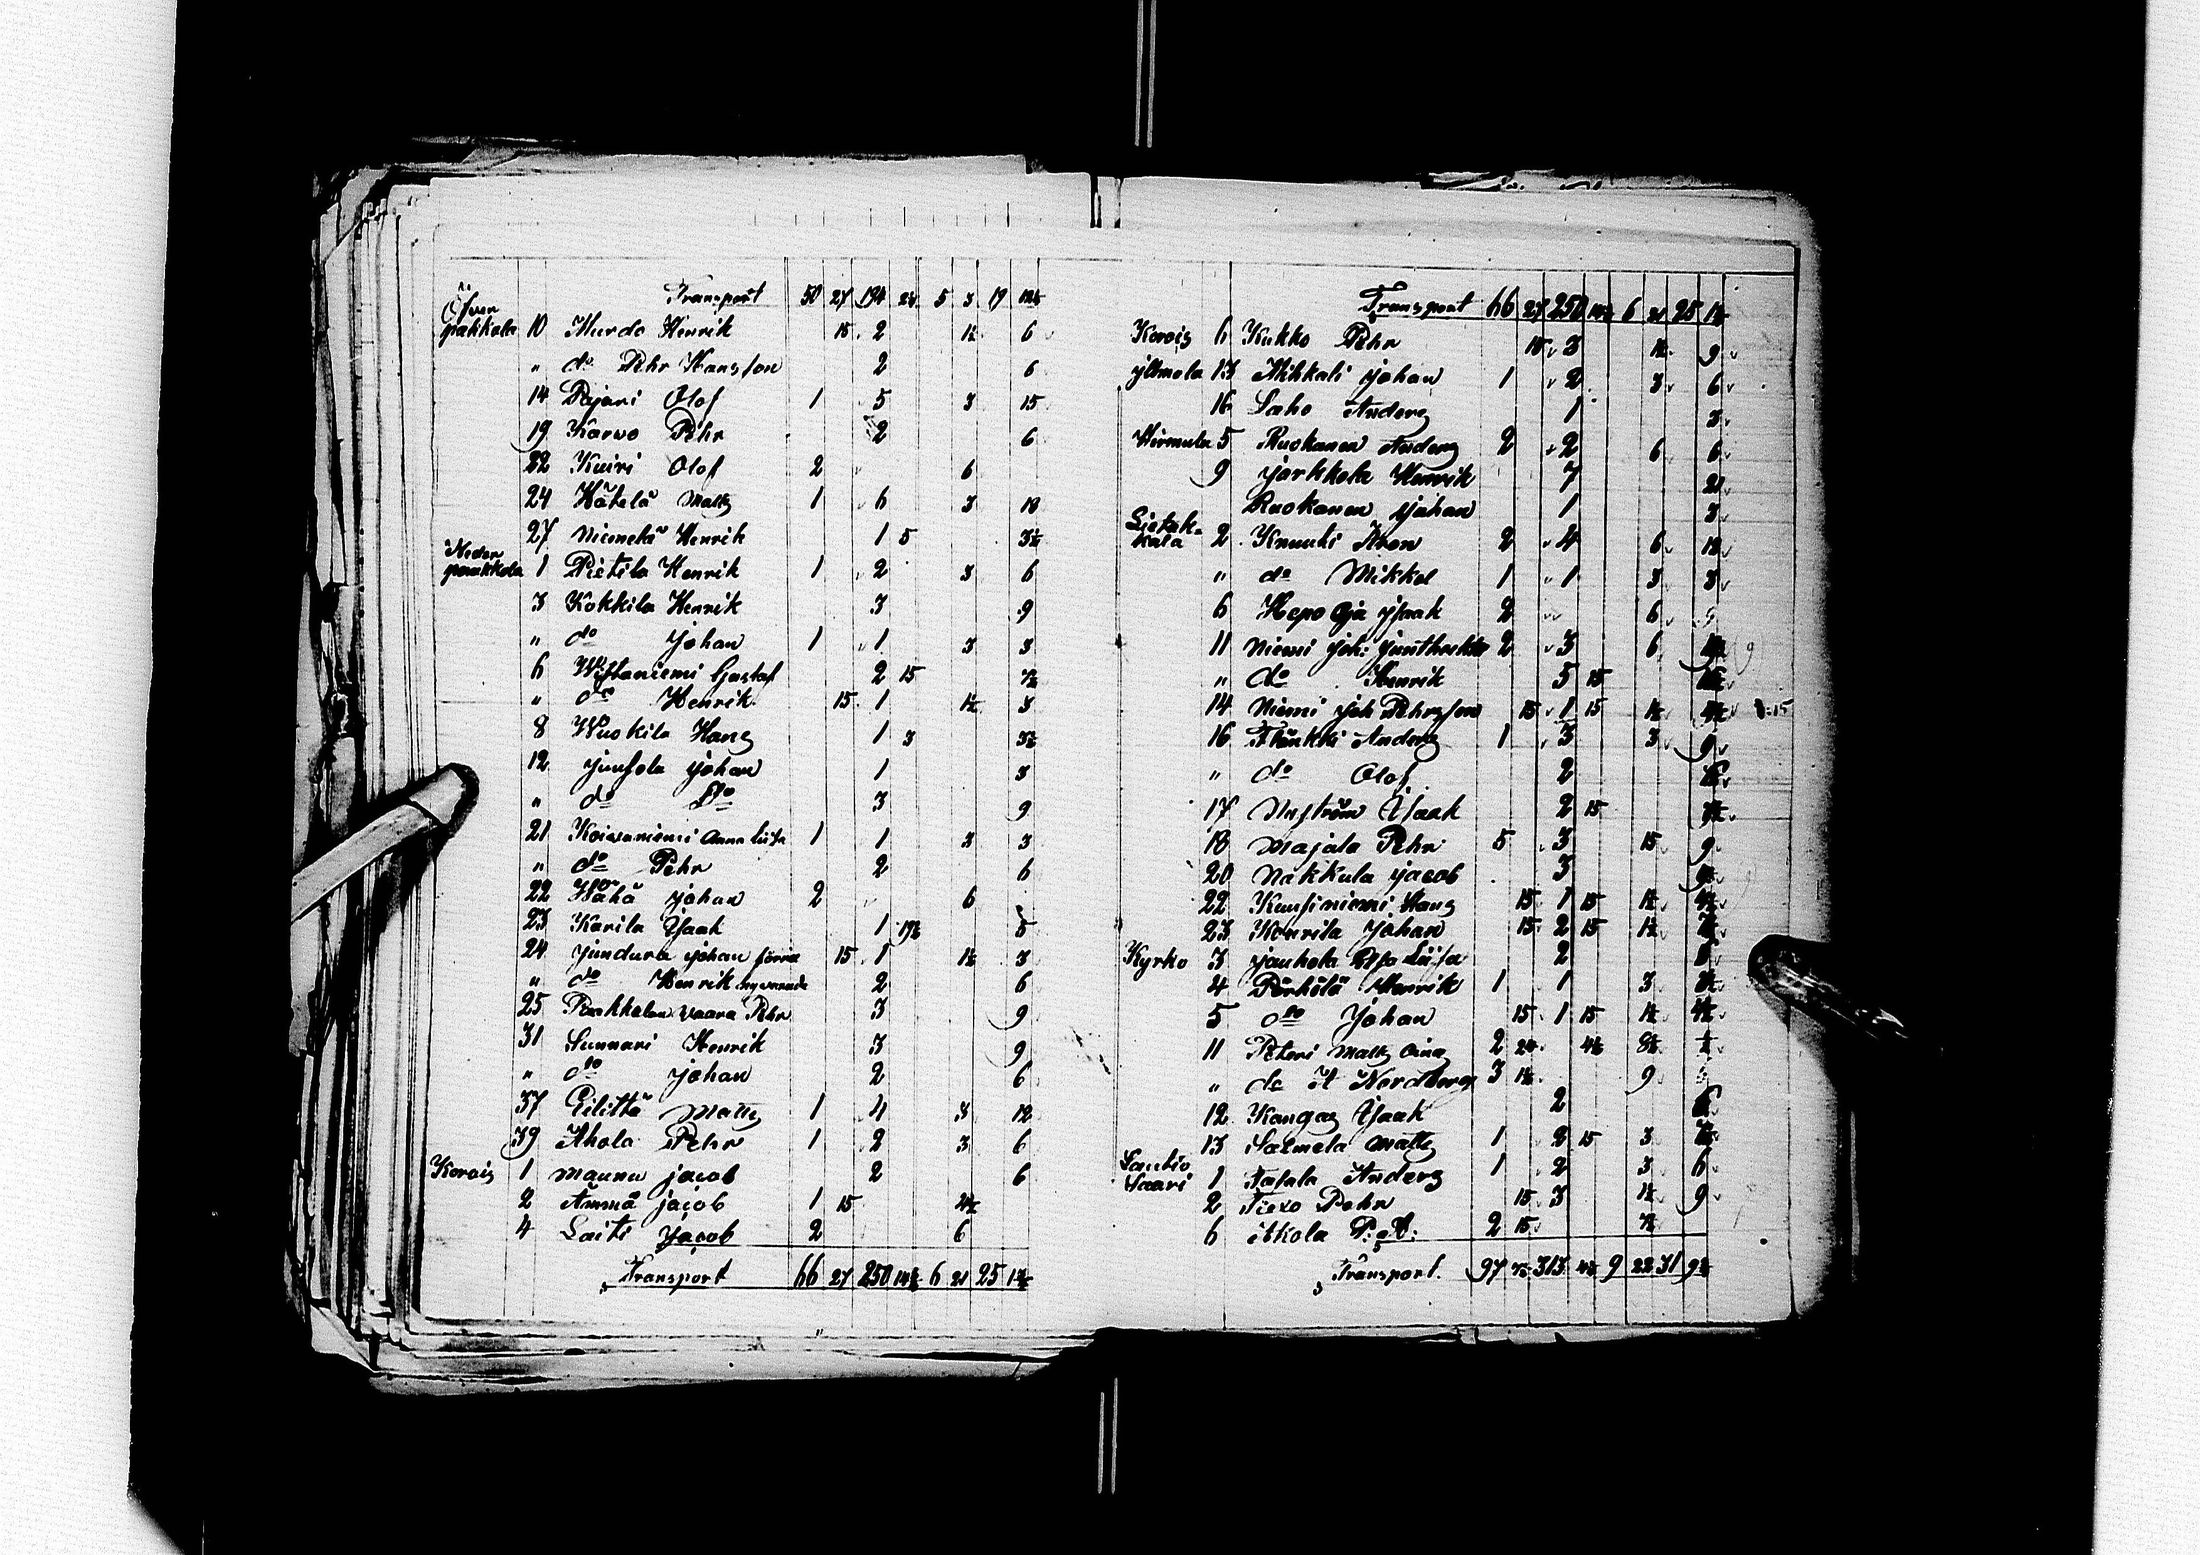 Transport 50 27 194 24 5 3 19
Öfver
pakkola 10 Murdo Henrik 15 2 1½ 6
" do Pehr Hansson 2 6
14 Pajari Olof 1 5 3 15
19 Karvo Pehr 2 6
22 Kuiri Olof 2 6
24 Hätelä Matts 1 6 3 18
27 Niemelä Henrik 1 5 3½
Neder
paakkola 1 Pietila Henrik 1 2 3 6
3 Kokkila Henrik 3 9
" do Johan 1 1 3 3
6 Gustaf 2 15 7½
" do Henrik 15 1 1½ 3
8 Wuokila Hans 1 3 3½
12 Junsola Johan 1 3
" do Do 3 9
21 Koivuniemi Anna Liisa 1 1 3 3
" do Pehr 2 6
22 Wähä Johan 2 6
23 Karila Isaak 1 19½ 5
24 Jundura Johan förra 15 1 1½ 3
" do Henrik nyvarande 2 6
25 Paakkolan vaara Pehr 3 9
31 Sunnari Henrik 3 9
" do Johan 2 6
37 Eilittä Matts 1 4 3 12
39 Ahola Pehr 1 2 3 6
Korois 1 Maunu Jacob 2 6
2 Ämmä Jacob 1 15 4½
4 Laiti Jacob 2 6
Transport 66 27 250 14½ 6 21 25 1½
Transport 66 27 250 14½ 6 21 25 1½
Korois 6 Kukko Pehr 15 3 1½ 9
Ylimola 13 Mihkali Johan 1 2 3 6
16 Laho Anders 1 3
Hirmula 5 Ruokanen Anders 2 2 6 6
9 Jarkkola Henrik 7 21
Ruokanen Johan 1 3
Lietak-
kala 2 Knuuti Aron 2 4 6 12
" do Mikkel 1 1 3 3
6 Hepo Oja Isaak 2 6
11 Niemi Joh: 2 3 6
" do Henrik 5 15
14 Niemi Joh Pehrsson 15 1 15 1½ 4½
16 Flänkki Anders 1 3 3 9
" do Olof 2 6
17 Nyström Isaak 2 15 7½
18 Majala Pehr 5 3 15 9
20 Nakkula Jacob 3 9
22 Kuusiniemi Hans 15 1 15 1½ 4½
23 Kourila Johan 15 2 15 1½ 7½
Kyrko 3 Jauhola Liisa 2 6
4 Pörhölä Henrik 1 1 3
5 do Johan 15 1 15 1½ 4½
11 Peteri Matts 2 24 4½ 8½ ½
" do H Nordberg 3 1½ 9
12 Kangas Isaak 2 6
13 Salmela Matts 1 2 15 3 7½
Lautio
Saari 1 Talala Anders 1 2 3 6
2 Fiexo Pehr 15 3 1½ 9
6 Itkola 2 15 7½
Transport. 97 7½ 313 4½ 9 22 31 9½